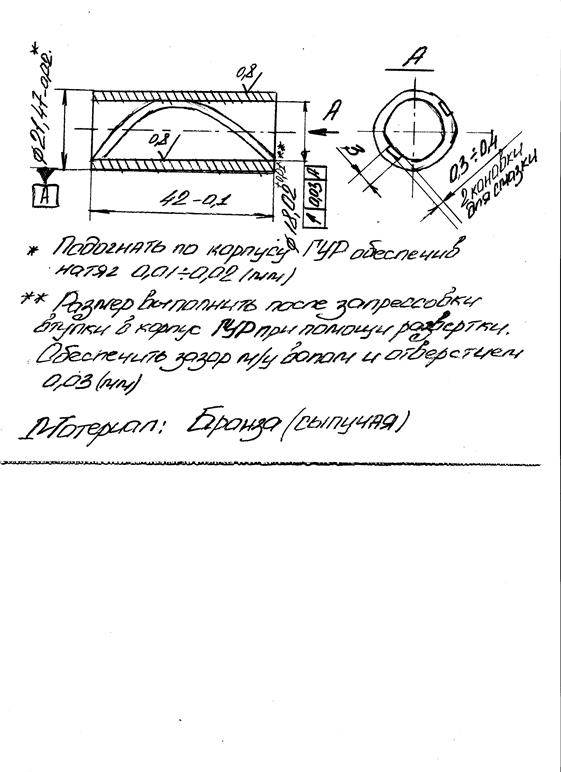 A
0,8
⌀21,47-0,02*
A
0,8
A
42-0,1
⌀18,02
0,03 A
3
0,3÷0,4
2 канавки
для смазки
* Подогнать по корпусу ГУР обеспечив
натяг 0,01÷0,02 (мм)
** Размер выполнить после запрессовки
втулки в корпус ГУР при помощи развертки.
Обеспечить зазор м/у валом и отверстием
0,03 (мм)
Материал: Бронза (сыпучая)